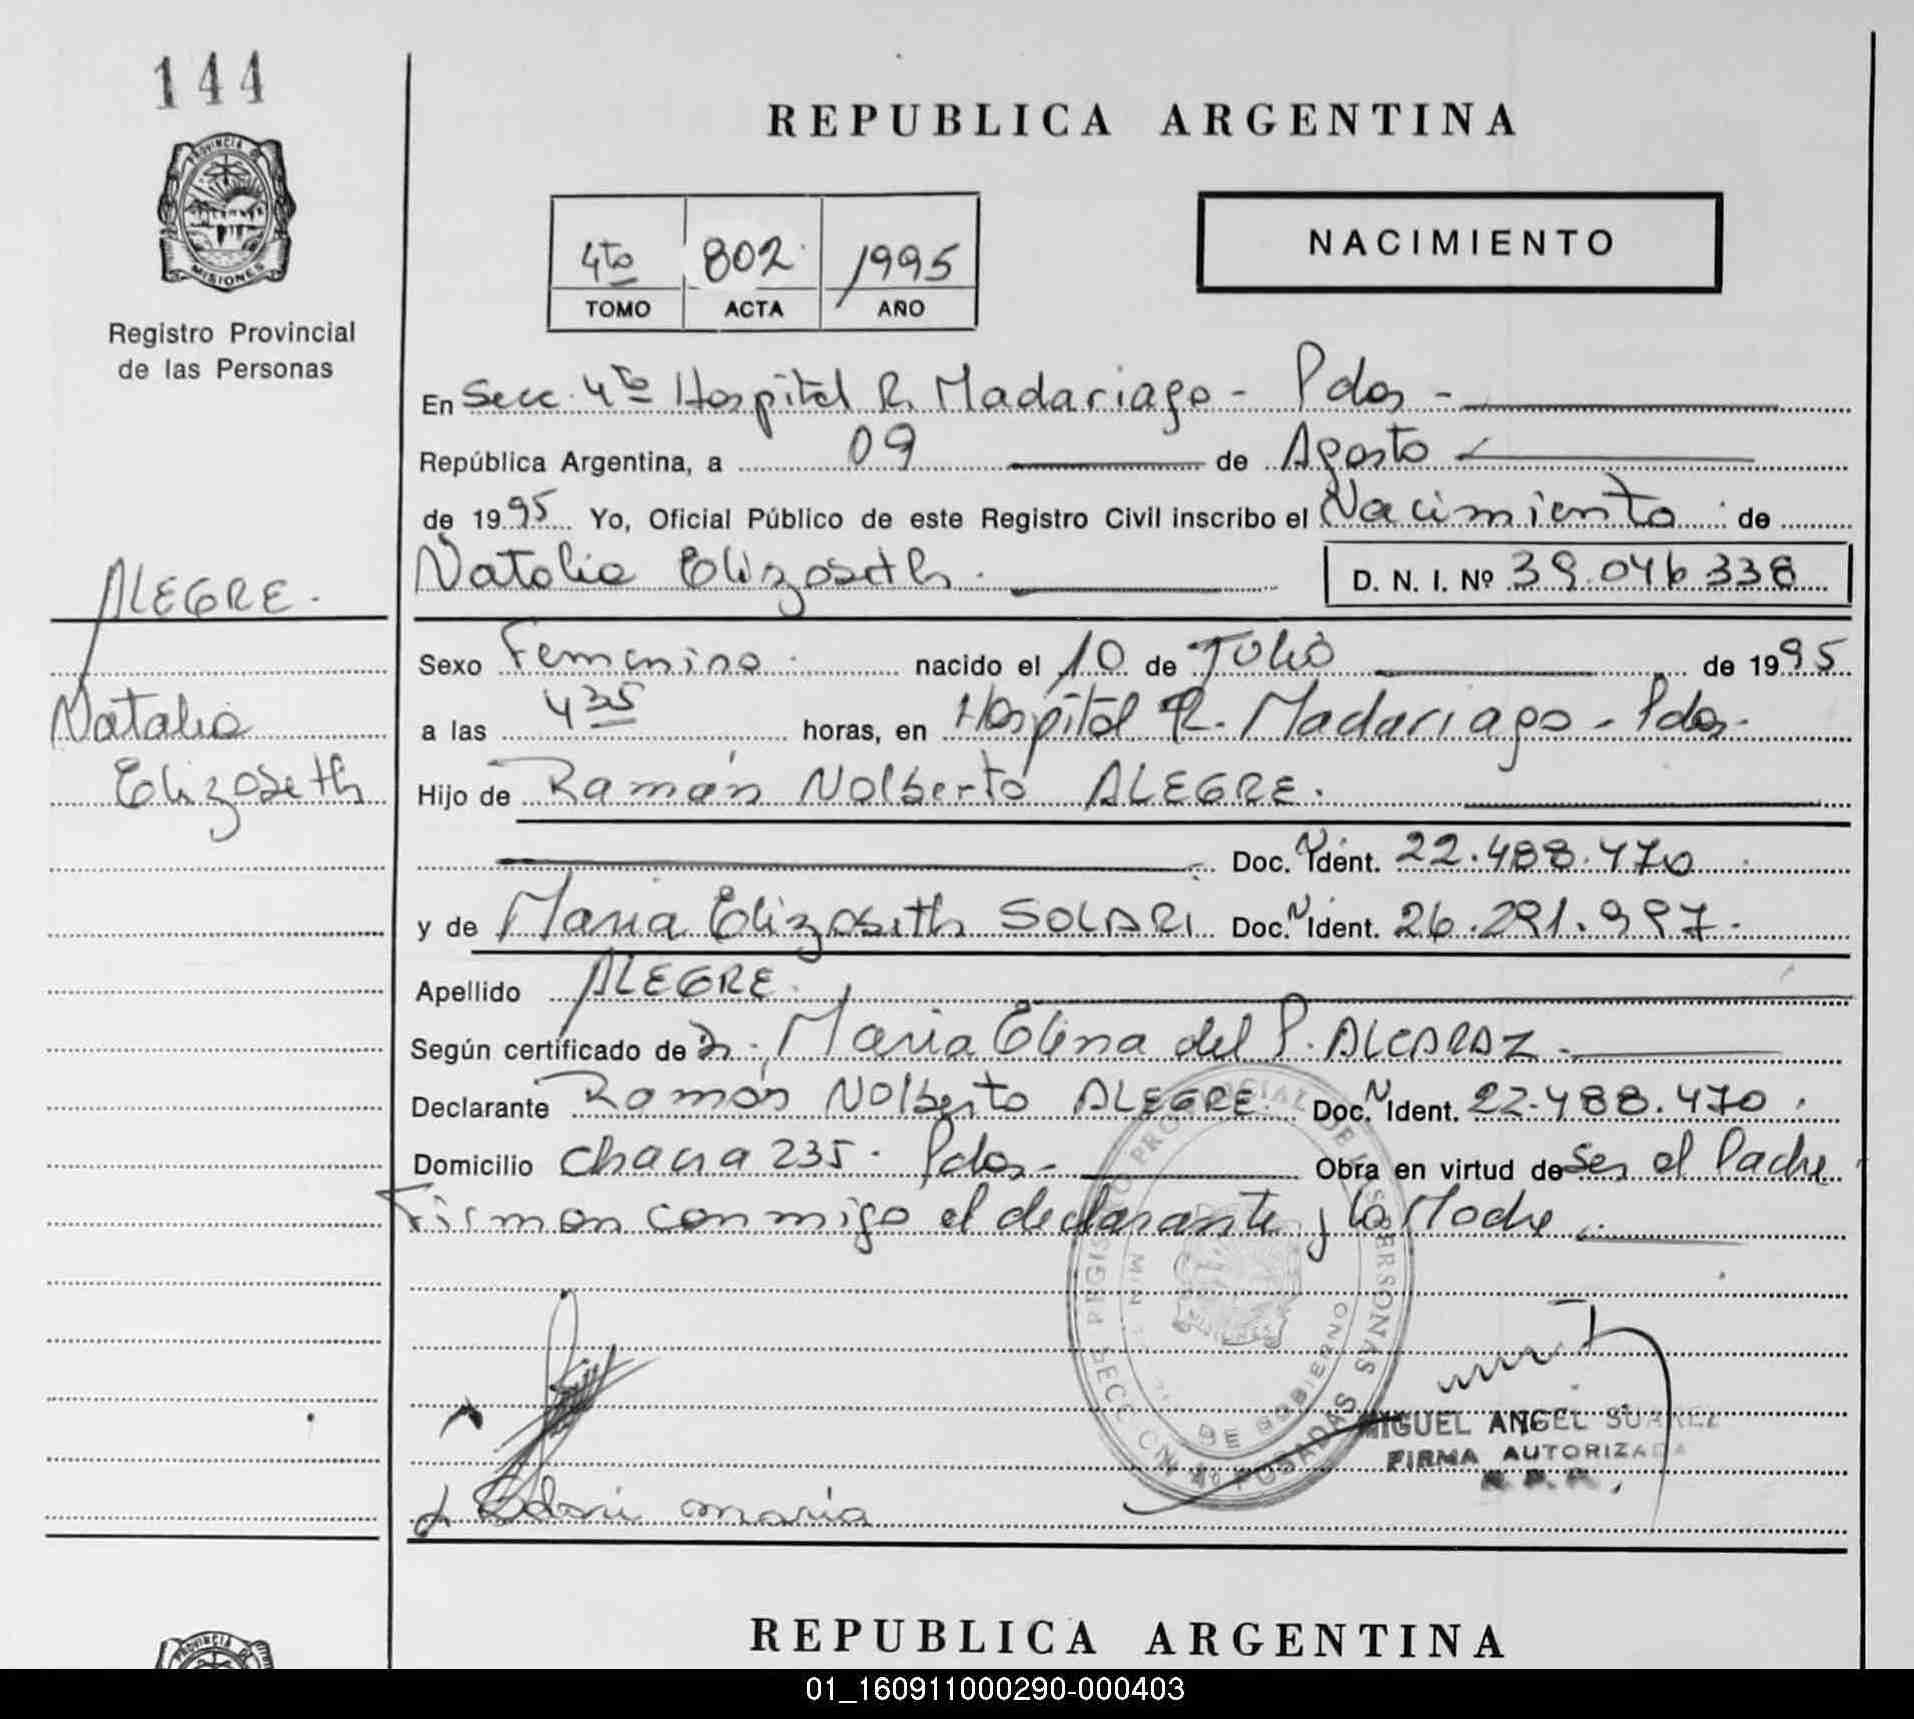 144
REPUBLICA ARGENTINA
PROVINCIA DE
MISIONES
Registro Provincial
de las Personas
4to 802 1995
TOMO ACTA AÑO
NACIMIENTO
En Secc. 4ta Hospital R. Madariaga - Pdas -
República Argentina, a 09 de Agosto
de 1995 Yo, Oficial Público de este Registro Civil inscribo el Nacimiento de
Natalia Elizabeth. D. N. I. Nº 39.046.338
ALEGRE.
Natalia
Elizabeth
Sexo Femenino. nacido el 10 de Julio de 1995
a las 4 35 horas, en Hospital R. Madariaga - Pdas -
Hijo de Ramón Nolberto ALEGRE.
Doc. N Ident. 22.488.470
y de Maria Elizabeth SOLARI Doc. N Ident. 26.291.997.
Apellido ALEGRE.
Según certificado de Dr. Maria Elena del P. ALCARAZ.
Declarante Ramón Nolberto ALEGRE. Doc. N Ident. 22.488.470.
Domicilio Chacra 235. Pdas - Obra en virtud de Ser el Padre
Firman conmigo el declarante y la Madre.
REGISTRO PROVINCIAL DE LAS PERSONAS
SECCION 4º POSADAS
DE GOBIERNO
MIGUEL ANGEL SUAREZ
FIRMA AUTORIZADA
R. P. P.
Solari maria
REPUBLICA ARGENTINA
PROVINCIA DE
01_160911000290-000403